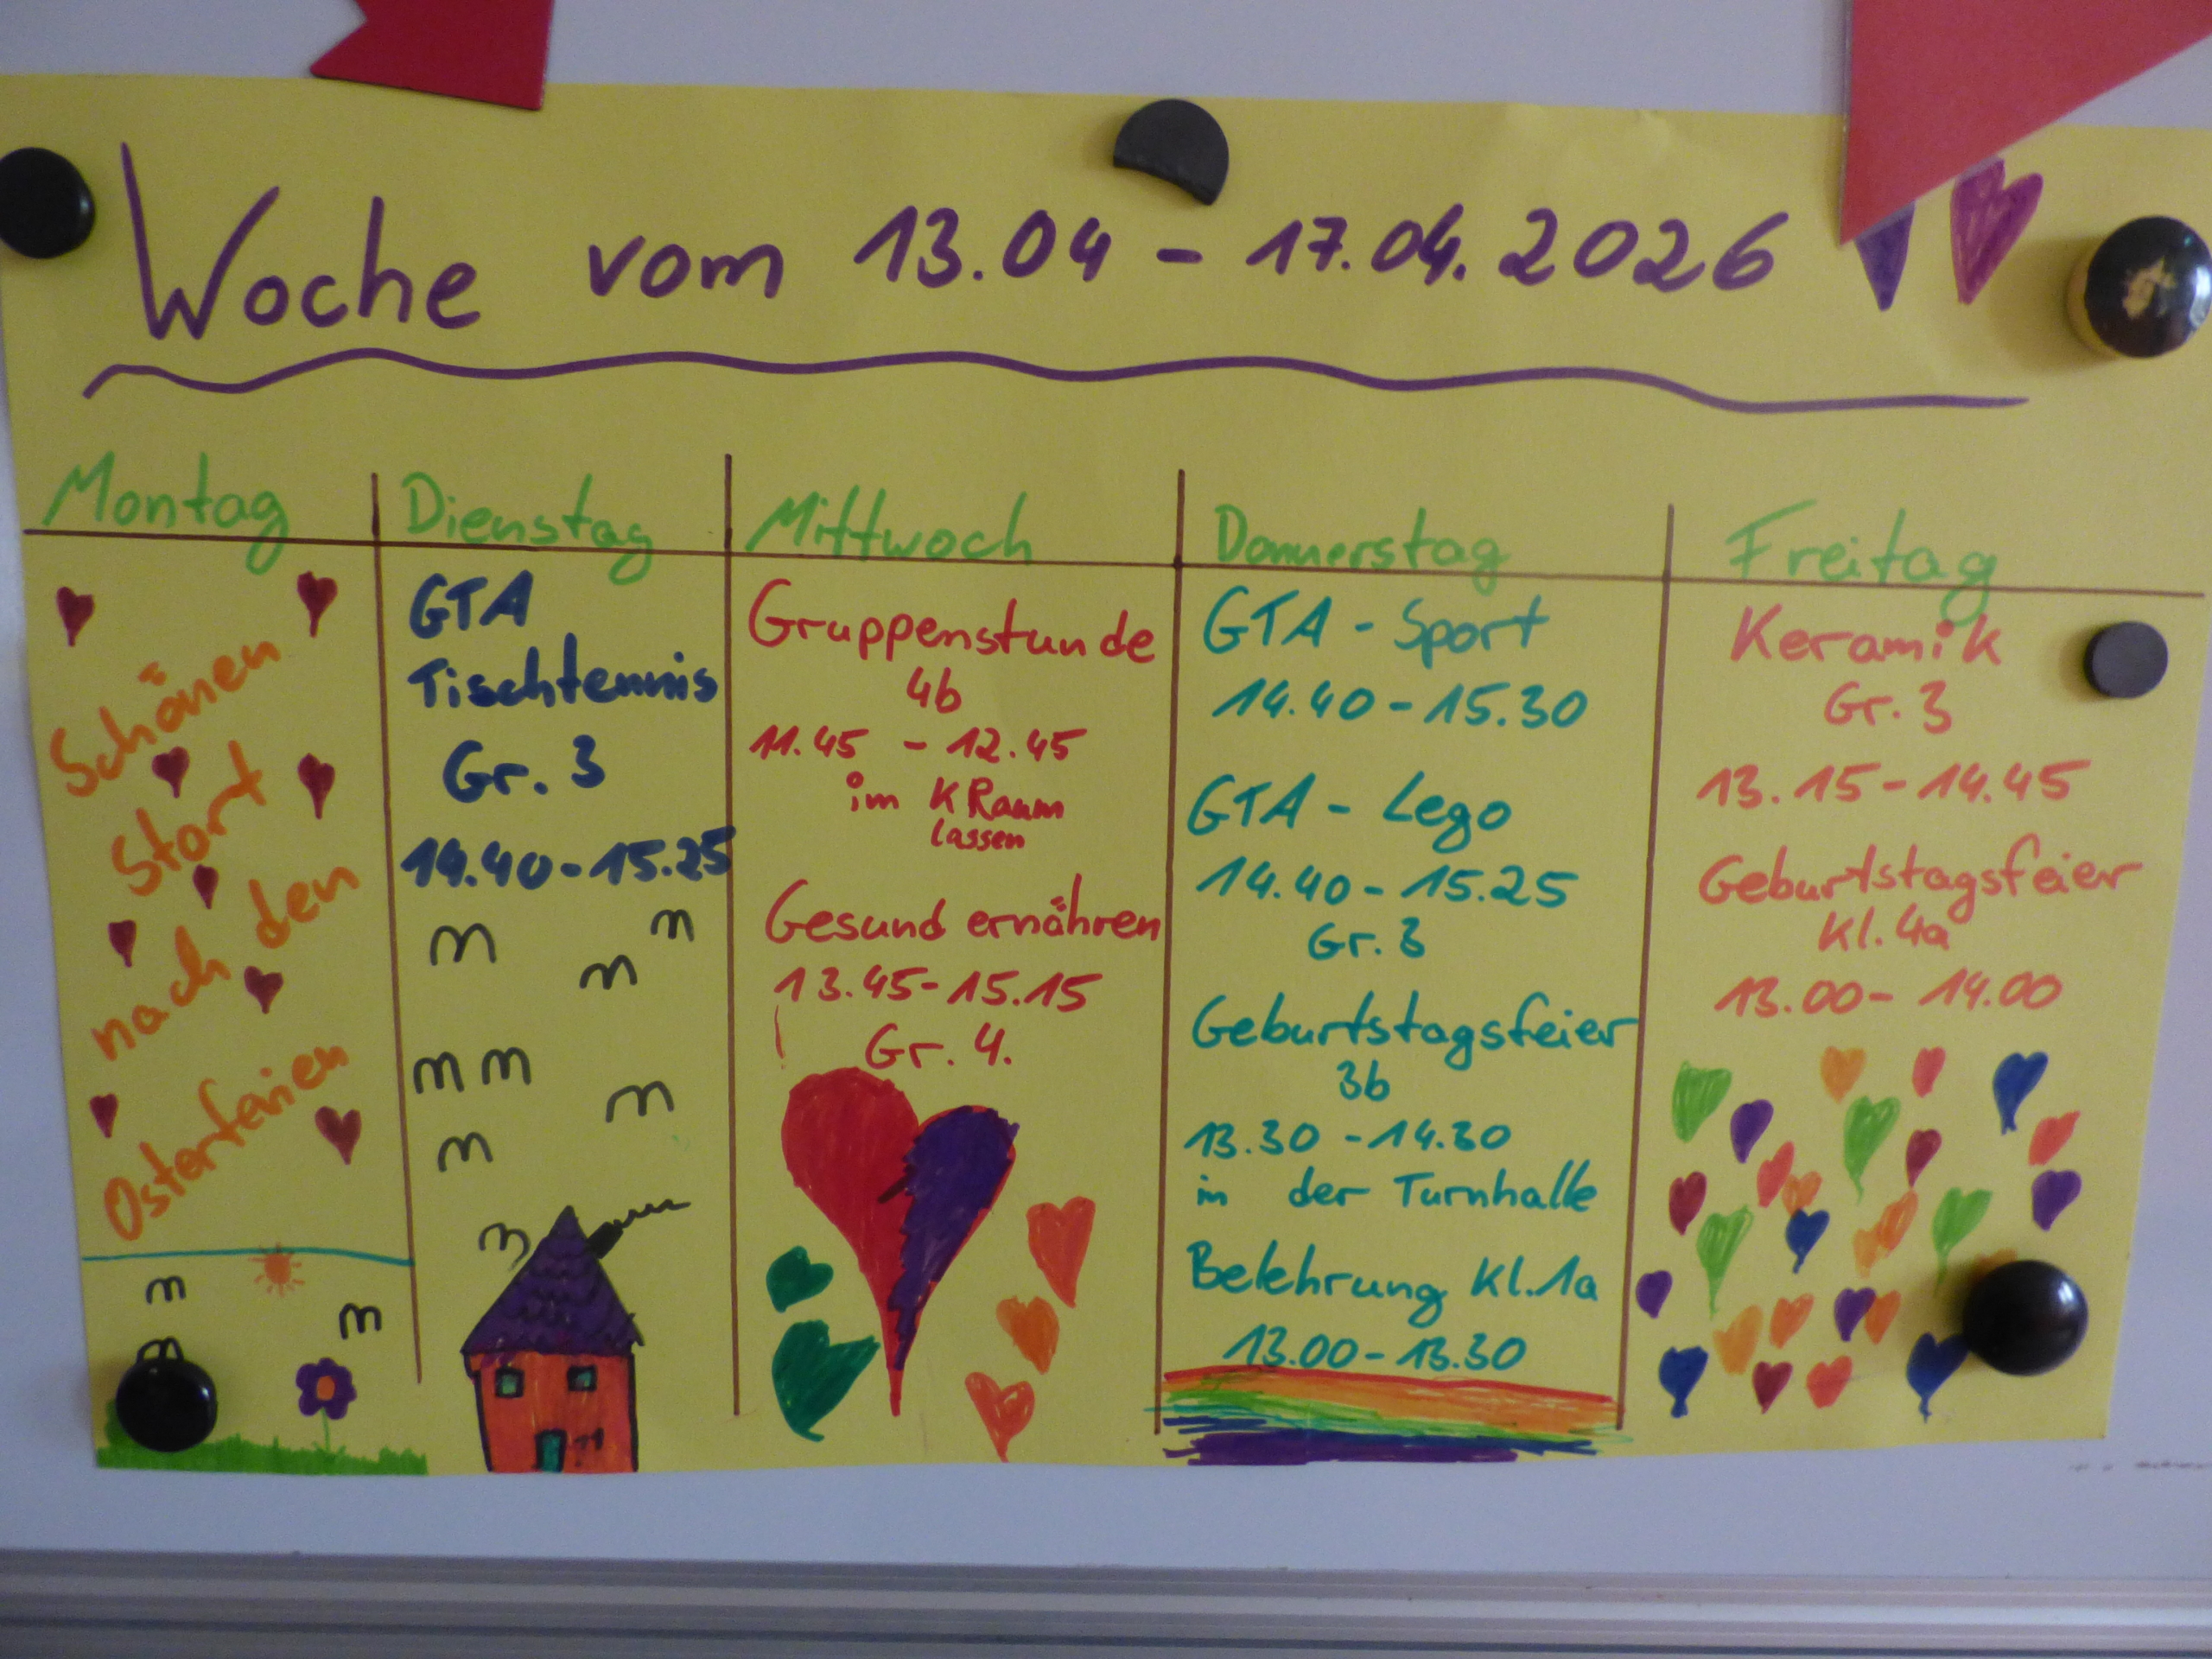 Woche vom 13.04 - 17.04.2026
Montag
Schönen
Start
nach den
Osterferien
Dienstag
GTA
Tischtennis
Gr. 3
14.40-15.25
Mittwoch
Gruppenstunde
4b
11.45 - 12.45
im K Raum
lassen
Gesund ernähren
13.45-15.15
Gr. 4.
Donnerstag
GTA - Sport
14.40-15.30
GTA - Lego
14.40-15.25
Gr. 3
Geburtstagsfeier
3b
13.30-14.30
in der Turnhalle
Belehrung Kl.1a
13.00-13.30
Freitag
Keramik
Gr. 3
13.15-14.45
Geburtstagsfeier
Kl. 4a
13.00-14.00